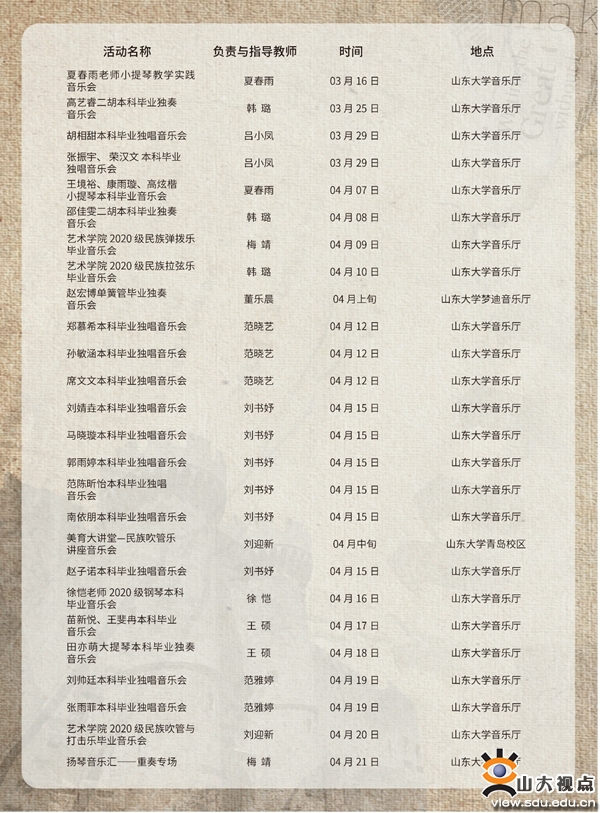 活动名称 负责与指导教师 时间 地点
夏春雨老师小提琴教学实践
音乐会 夏春雨 03 月 16 日 山东大学音乐厅
高艺睿二胡本科毕业独奏
音乐会 韩 璐 03 月 25 日 山东大学音乐厅
胡相甜本科毕业独唱音乐会 吕小凤 03 月 29 日 山东大学音乐厅
张振宇、荣汉文 本科毕业
独唱音乐会 吕小凤 03 月 29 日 山东大学音乐厅
王境裕、康雨璇、高炫楷
小提琴本科毕业音乐会 夏春雨 04 月 07 日 山东大学音乐厅
邵佳雯二胡本科毕业独奏
音乐会 韩 璐 04 月 08 日 山东大学音乐厅
艺术学院 2020 级民族弹拨乐
毕业音乐会 梅 靖 04 月 09 日 山东大学音乐厅
艺术学院 2020 级民族拉弦乐
毕业音乐会 韩 璐 04 月 10 日 山东大学音乐厅
赵宏博单簧管毕业独奏
音乐会 董乐晨 04 月上旬 山东大学梦迪音乐厅
郑慕希本科毕业独唱音乐会 范晓艺 04 月 12 日 山东大学音乐厅
孙敏涵本科毕业独唱音乐会 范晓艺 04 月 12 日 山东大学音乐厅
席文文本科毕业独唱音乐会 范晓艺 04 月 12 日 山东大学音乐厅
刘婧垚本科毕业独唱音乐会 刘书妤 04 月 15 日 山东大学音乐厅
马晓璇本科毕业独唱音乐会 刘书妤 04 月 15 日 山东大学音乐厅
郭雨婷本科毕业独唱音乐会 刘书妤 04 月 15 日 山东大学音乐厅
范陈昕怡本科毕业独唱
音乐会 刘书妤 04 月 15 日 山东大学音乐厅
南依朋本科毕业独唱音乐会 刘书妤 04 月 15 日 山东大学音乐厅
美育大讲堂—民族吹管乐
讲座音乐会 刘迎新 04 月中旬 山东大学青岛校区
赵子诺本科毕业独唱音乐会 刘书妤 04 月 15 日 山东大学音乐厅
徐恺老师 2020 级钢琴本科
毕业音乐会 徐 恺 04 月 16 日 山东大学音乐厅
苗新悦、王斐冉本科毕业
音乐会 王 硕 04 月 17 日 山东大学音乐厅
田亦萌大提琴本科毕业独奏
音乐会 王 硕 04 月 18 日 山东大学音乐厅
刘帅廷本科毕业独唱音乐会 范雅婷 04 月 19 日 山东大学音乐厅
张雨菲本科毕业独唱音乐会 范雅婷 04 月 19 日 山东大学音乐厅
艺术学院 2020 级民族吹管与
打击乐毕业音乐会 刘迎新 04 月 20 日 山东大学音乐厅
扬琴音乐汇——重奏专场 梅 靖 04 月 21 日 山东大学音乐厅
山大视点
view.sdu.edu.cn